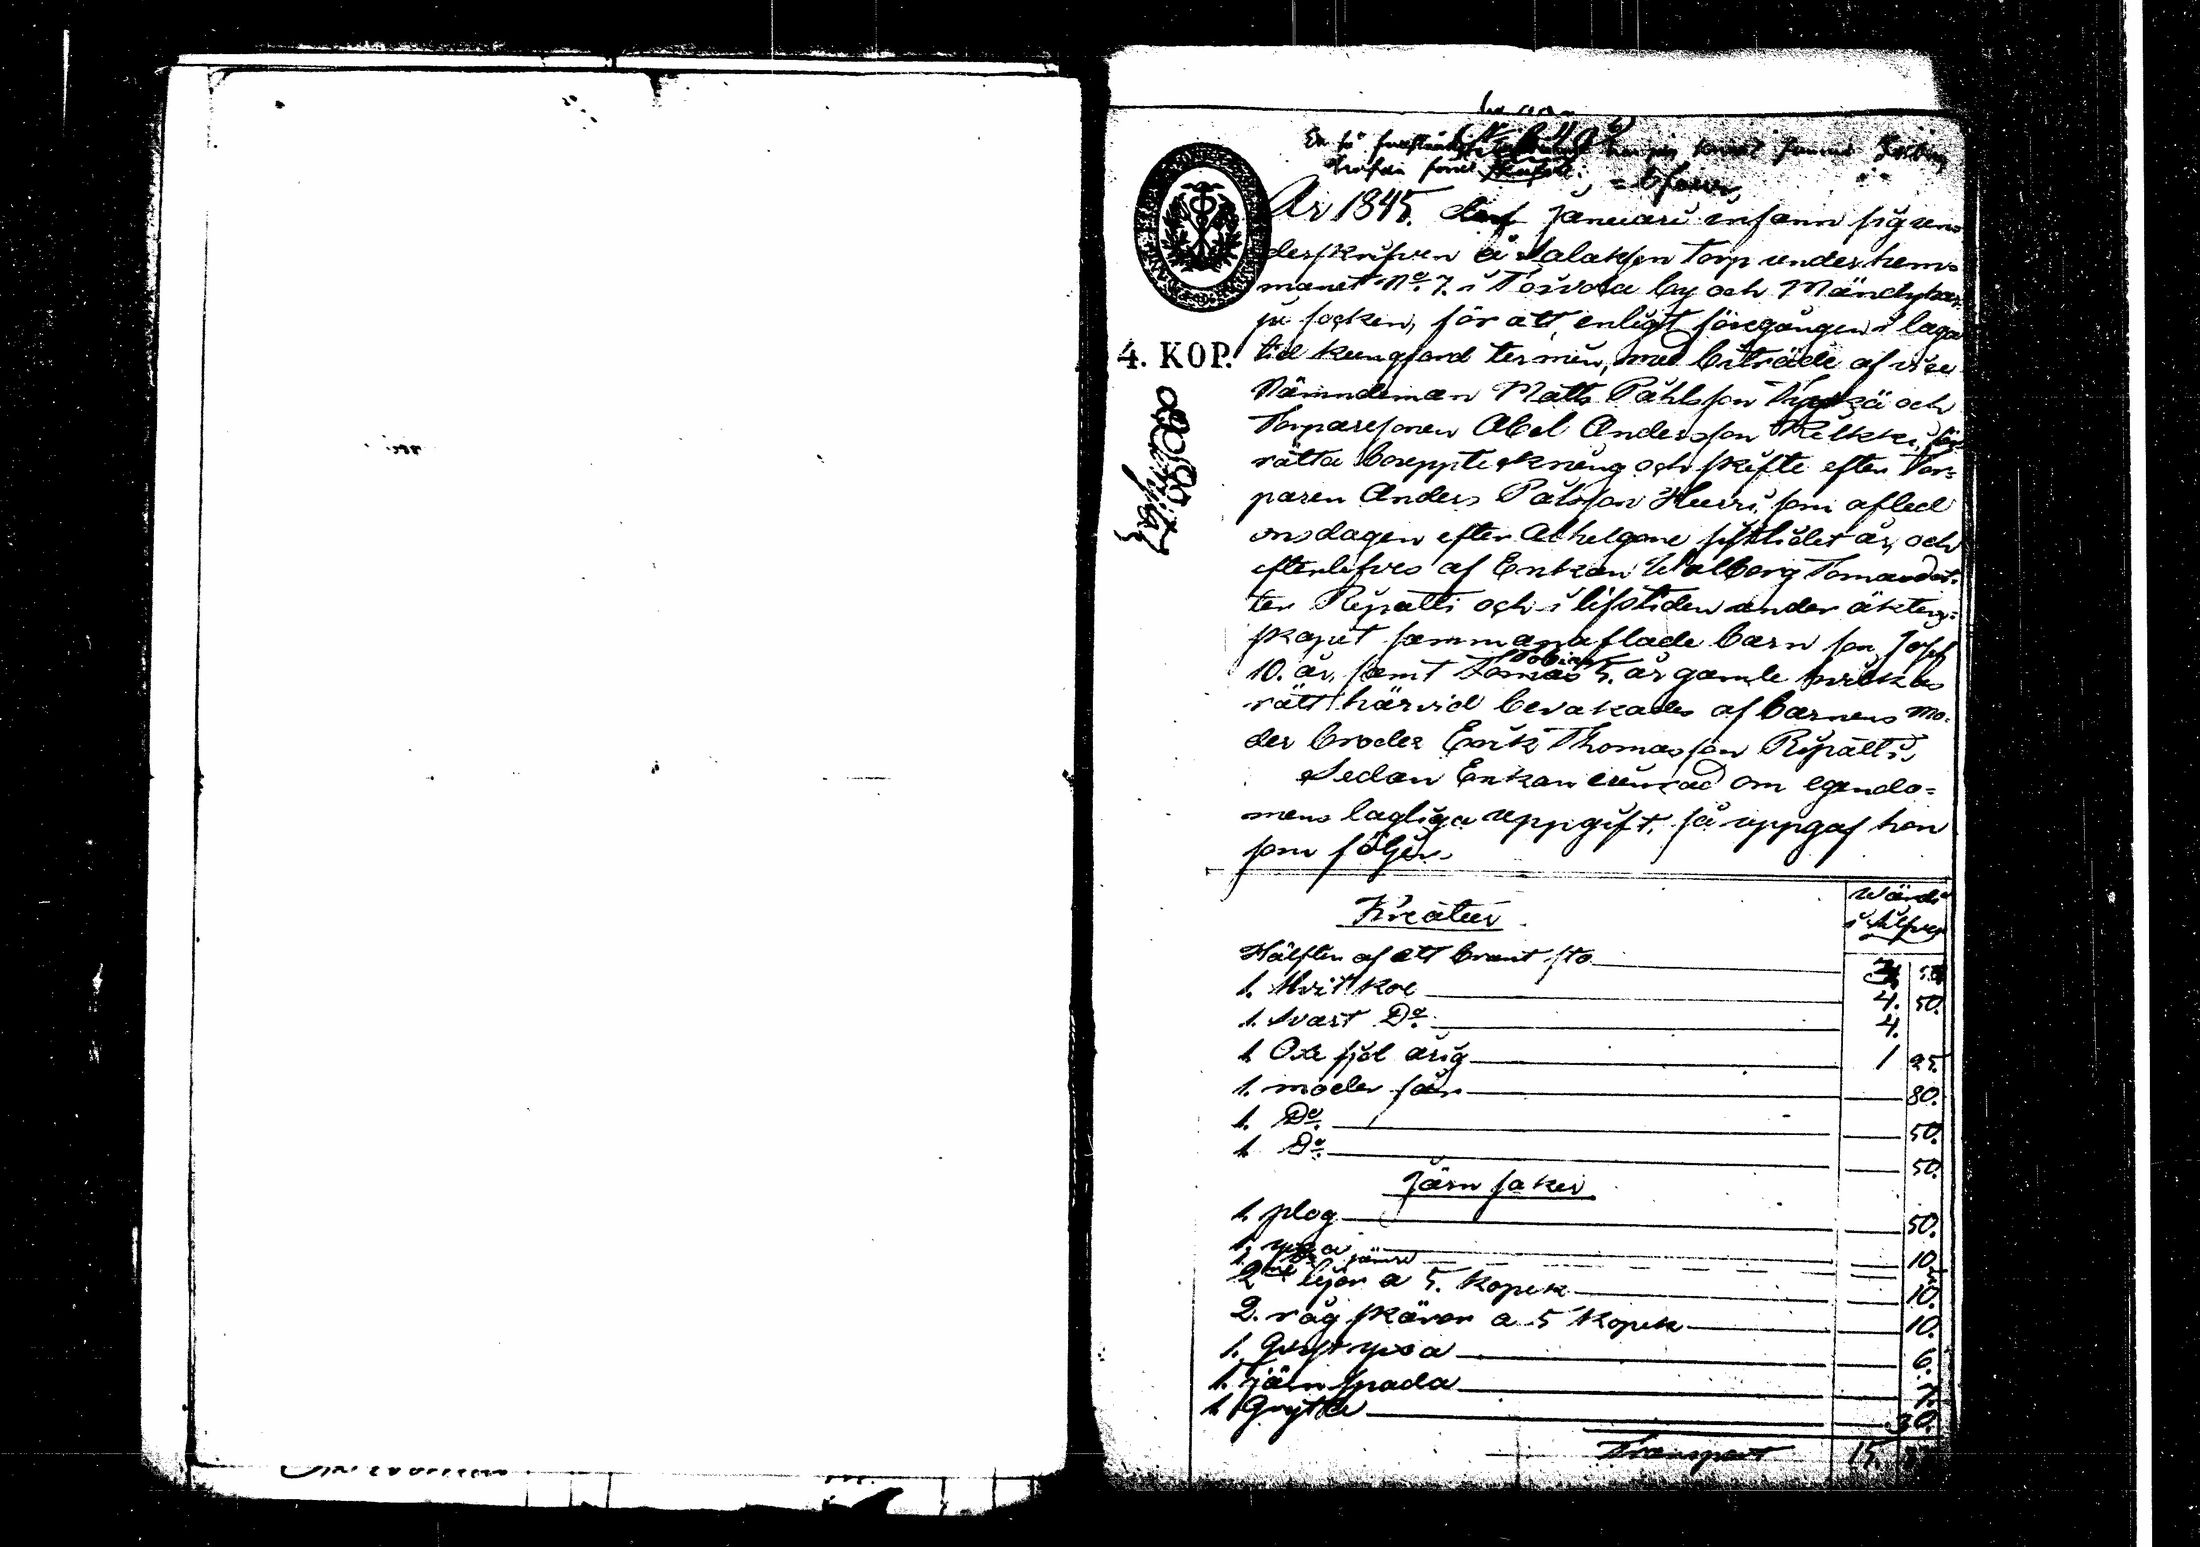 År 1845. den januari infann sig un-
derskrifven å Salaksen Torp under hem-
manet No. 7. i Toivola by och Mändyhar-
ju socken, för att, enligt föregången i laga
4. KOP. tid kungjord termin, med biträde af vice
Nämndeman Matts Påhlsson och
Torparesonen Abel Andersson Kilkki, för-
rätta bouppteckning och skifte efter Tor-
paren Anders Pålsson Hurri, som afled
onsdagen efter Alhelgone sistlidet år, och
efterlefves af Enkan Walborg Tomasdot-
ter Ripatti och i lifstiden under äkten-
skapet sammanaflade barn son Josef
10. år, samt Tobias 5. år gamle hvilkas
rätt härvid bevakades af barnens mo-
der broder Erik Thomasson Ripatti.
Sedan Enkan om egendo-
mens lagliga uppgift, så uppgaf hon
som följer.
Kreatur
Wärde
i Silfver
Hälften af ett brunt sto
1. Hvit koe 4. 50.
1. Svart Do. 4.
1 Oxe fjol årig 1 25.
1. moder får 80.
1. Do. 50.
1. Do. 50.
Järn saker
1. plog 50.
1. yxa 10.
2 lijor a 5. kopek 10.
2. råg skäror a 5 kopek 10.
1. yxa 6.
1. järn spada
1. Gryta 30.
Transport 15.